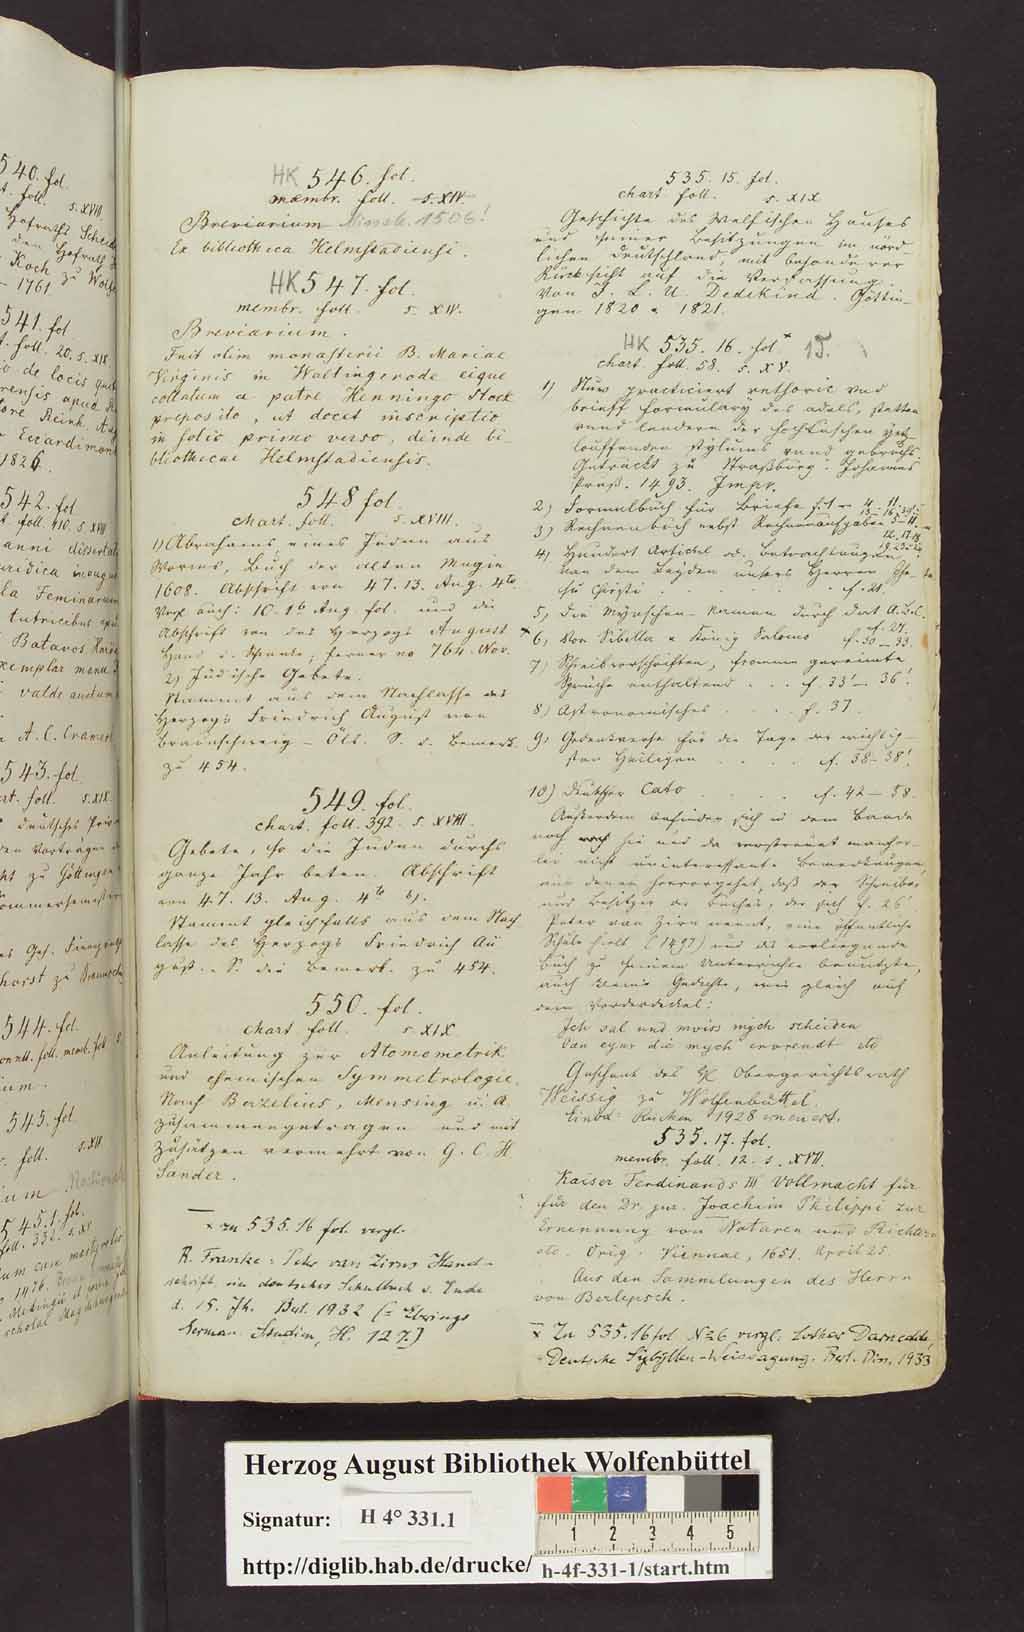 HK 546. fol.
membr. foll. s. XIV.
Breviarium 1506!
Ex bibliotheca Helmstadiensi.
HK 547. fol.
membr. foll. s. XIV.
Breviarium.
Fuit olim monasterii B. Mariae
Virginis in Waltingerode eique
collatum a patre Henningo Stock
preposito, ut docet inscriptio
in folio primo verso, deinde bi-
bliothecae Helmstadiensis.
548 fol.
chart. foll. s. XVIII.
1) Abrahams eines Juden aus
Worms, Buch der alten Magie
1608. Abschrift von 47. 13. Aug. 4to
Vergl. auch: 10. 1. Aug. fol. und die
Abschrift von des Herzogs August
Hand, ferner no 764. Nov.
2) Jüdische Gebete.
Stammt aus dem Nachlasse des
Herzogs Friedrich August von
Braunschweig - Öls. S. d. Bemerk.
zu 454.
549. fol.
chart. foll. 392. s. XVIII.
Gebete, so die Juden durchs
ganze Jahr beten. Abschrift
von 47. 13. Aug. 4to
Stammt gleichfalls aus dem Nach
lasse des Herzogs Friedrich Au
gust. S. die Bemerk. zu 454.
550. fol.
chart foll. s. XIX
Anleitung zur Atomometrik
und chemischen Symmetrologie.
Nach Berzelius, Mensing u. A.
zusammengetragen und mit
Zusätzen vermehrt von G. C. H.
Sander.
x zu 535.16 fol. vergl.
R. Franke: Peter van Zirns Hand-
schrift ein deutsches Schulbuch v. Ende
d. 15. Jh. Berl. 1932 (= Eberings
German. Studien, H. 127.)
535. 15. fol.
chart foll. s. XIX
Geschichte des Welfischen Hauses
und seiner Besitzungen im nörd-
lichen Deutschland, mit besonderer
Rücksicht auf die Verfassung.
Von J. L. U. Dedekind. Göttin-
gen 1820 u. 1821.
HK 535. 16. fol x 15.
chart. foll. 58. s. XV.
1) Nuw practiciert rethoric und
brieff formulary des adels, stetten
vnnd lendern der hochtuschen yetz-
louffenden stylums vnnd gebruchs.
Getruckt zu Straßburg. Johannes
Prüß. 1493. Impr.
2) Formelbuch für Briefe f. 1 - 4. 11.
3) Rechnenbuch nebst Rechnenaufgaben 5-11.
4) Hundert Artickel od. Betrachtungen
von dem Leyden unsers Herren Jhe-
su Christi . . . . f. 21.
5) Die Mynschen-Namen durch dat A.B.C.
f. 27.
x 6) Von Sibilla u. König Salomo f. 30 - 33.
7) Schreibvorschriften, fromme gereimte
Sprüche enthaltend . . . f. 33' - 36'.
8) Astronomisches . . . . f. 37.
9) Gedenkverse für die Tage der wichtig-
sten Heiligen . . . . f. 38 - 38'.
10) Deutscher Cato . . . . f. 42 - 58.
Außerdem befinden sich in dem Bande
noch hie und da verstreuet mancher-
lei nicht uninteressante Bemerkungen,
aus denen hervorgehet, daß der Schreiber
und Besitzer des Buches, der sich f. 26'
Peter van Zirn nennt, eine öffentliche
Schule hielt (1497) und das vorliegende
Buch zu seinem Unterrichte benutzte,
auch kleine Gedichte, wie gleich auf
dem Vorderdeckel:
Ich sal und moiss mych scheiden
Van eyner die mych ervreudt etc
Geschenk des H. Obergerichtsrath
Weissig zu Wolfenbüttel.
Einbd: Rücken 1928 erneuert.
535. 17. fol.
membr. foll. 12. s. XVII.
Kaiser Ferdinands III Vollmacht für
für den Dr. jur. Joachim Philippi zur
Ernennung von Notaren und Richtern
etc. Orig. Viennae, 1651. April 25.
Aus den Sammlungen des Herrn
von Berlepsch.
x Zu 535.16 fol. N. 6 vergl. Lothar Darnedde,
Deutsche Sibyllen-Weissagung. Berl. Diss. 1933
540. fol.
s. XVIII.
1761.
541. fol.
foll. 20. s. XIX.
1826.
542. fol
foll. 410. s. XVII
Batavos
valde auctum
A. C. Cramer
543. fol.
s. XIX.
544. fol.
545. fol
545.1. fol.
foll. 332. s. XV
Herzog August Bibliothek Wolfenbüttel
Signatur: H 4° 331.1
1 2 3 4 5
http://diglib.hab.de/drucke/ h-4f-331-1/start.htm